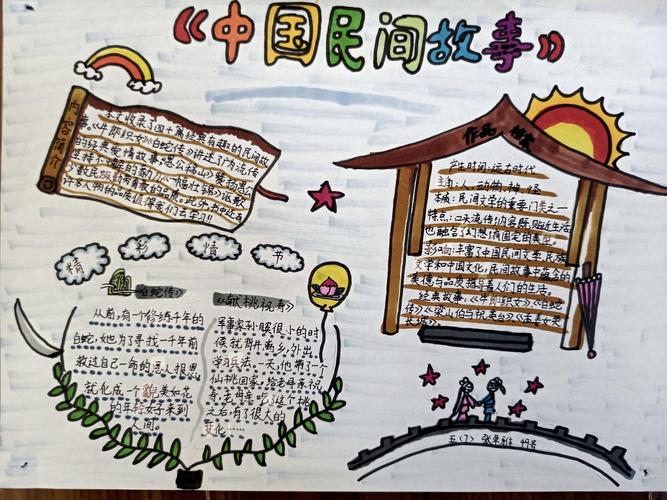 《中国民间故事》
内容简介
本文收录了国十篇经典有趣的民间故
事。《牛郎织女》《白蛇传》讲述了广为流传
的经典爱情故事,《愚公移山》赞扬愚公
许多人物的品质值得我们去学习!!
作品
产生时间:远古时代
主角:人、动物、神、怪
本质:民间文学的重要门类之一
特点:口头流传;内容既贴近生活
也融合了幻想;有固定的类型。
影响:丰富了中国民间文学、民族
文学和中国文化,民间故事中蕴含的
美德与品质指引着人们的生活。
经典故事:《牛郎织女》《白蛇
传》《梁山伯与祝英台》《孟姜女哭
长城》
精彩情节
《白蛇传》
从前,有一个修练千年的
白蛇,她为了寻找一千年前
救过自己一命的恩人报恩,
就化成一个貌美如花
的年轻女子来到
人间。
《献桃祝寿》
军事家孙膑很小的时
候就背井离乡,外出
学习兵法。一天,他带了一个
仙桃回家,给老母亲祝
寿,老母亲吃了这个桃
之后,有了很大的
变化……
五(7) 张 雅 49号